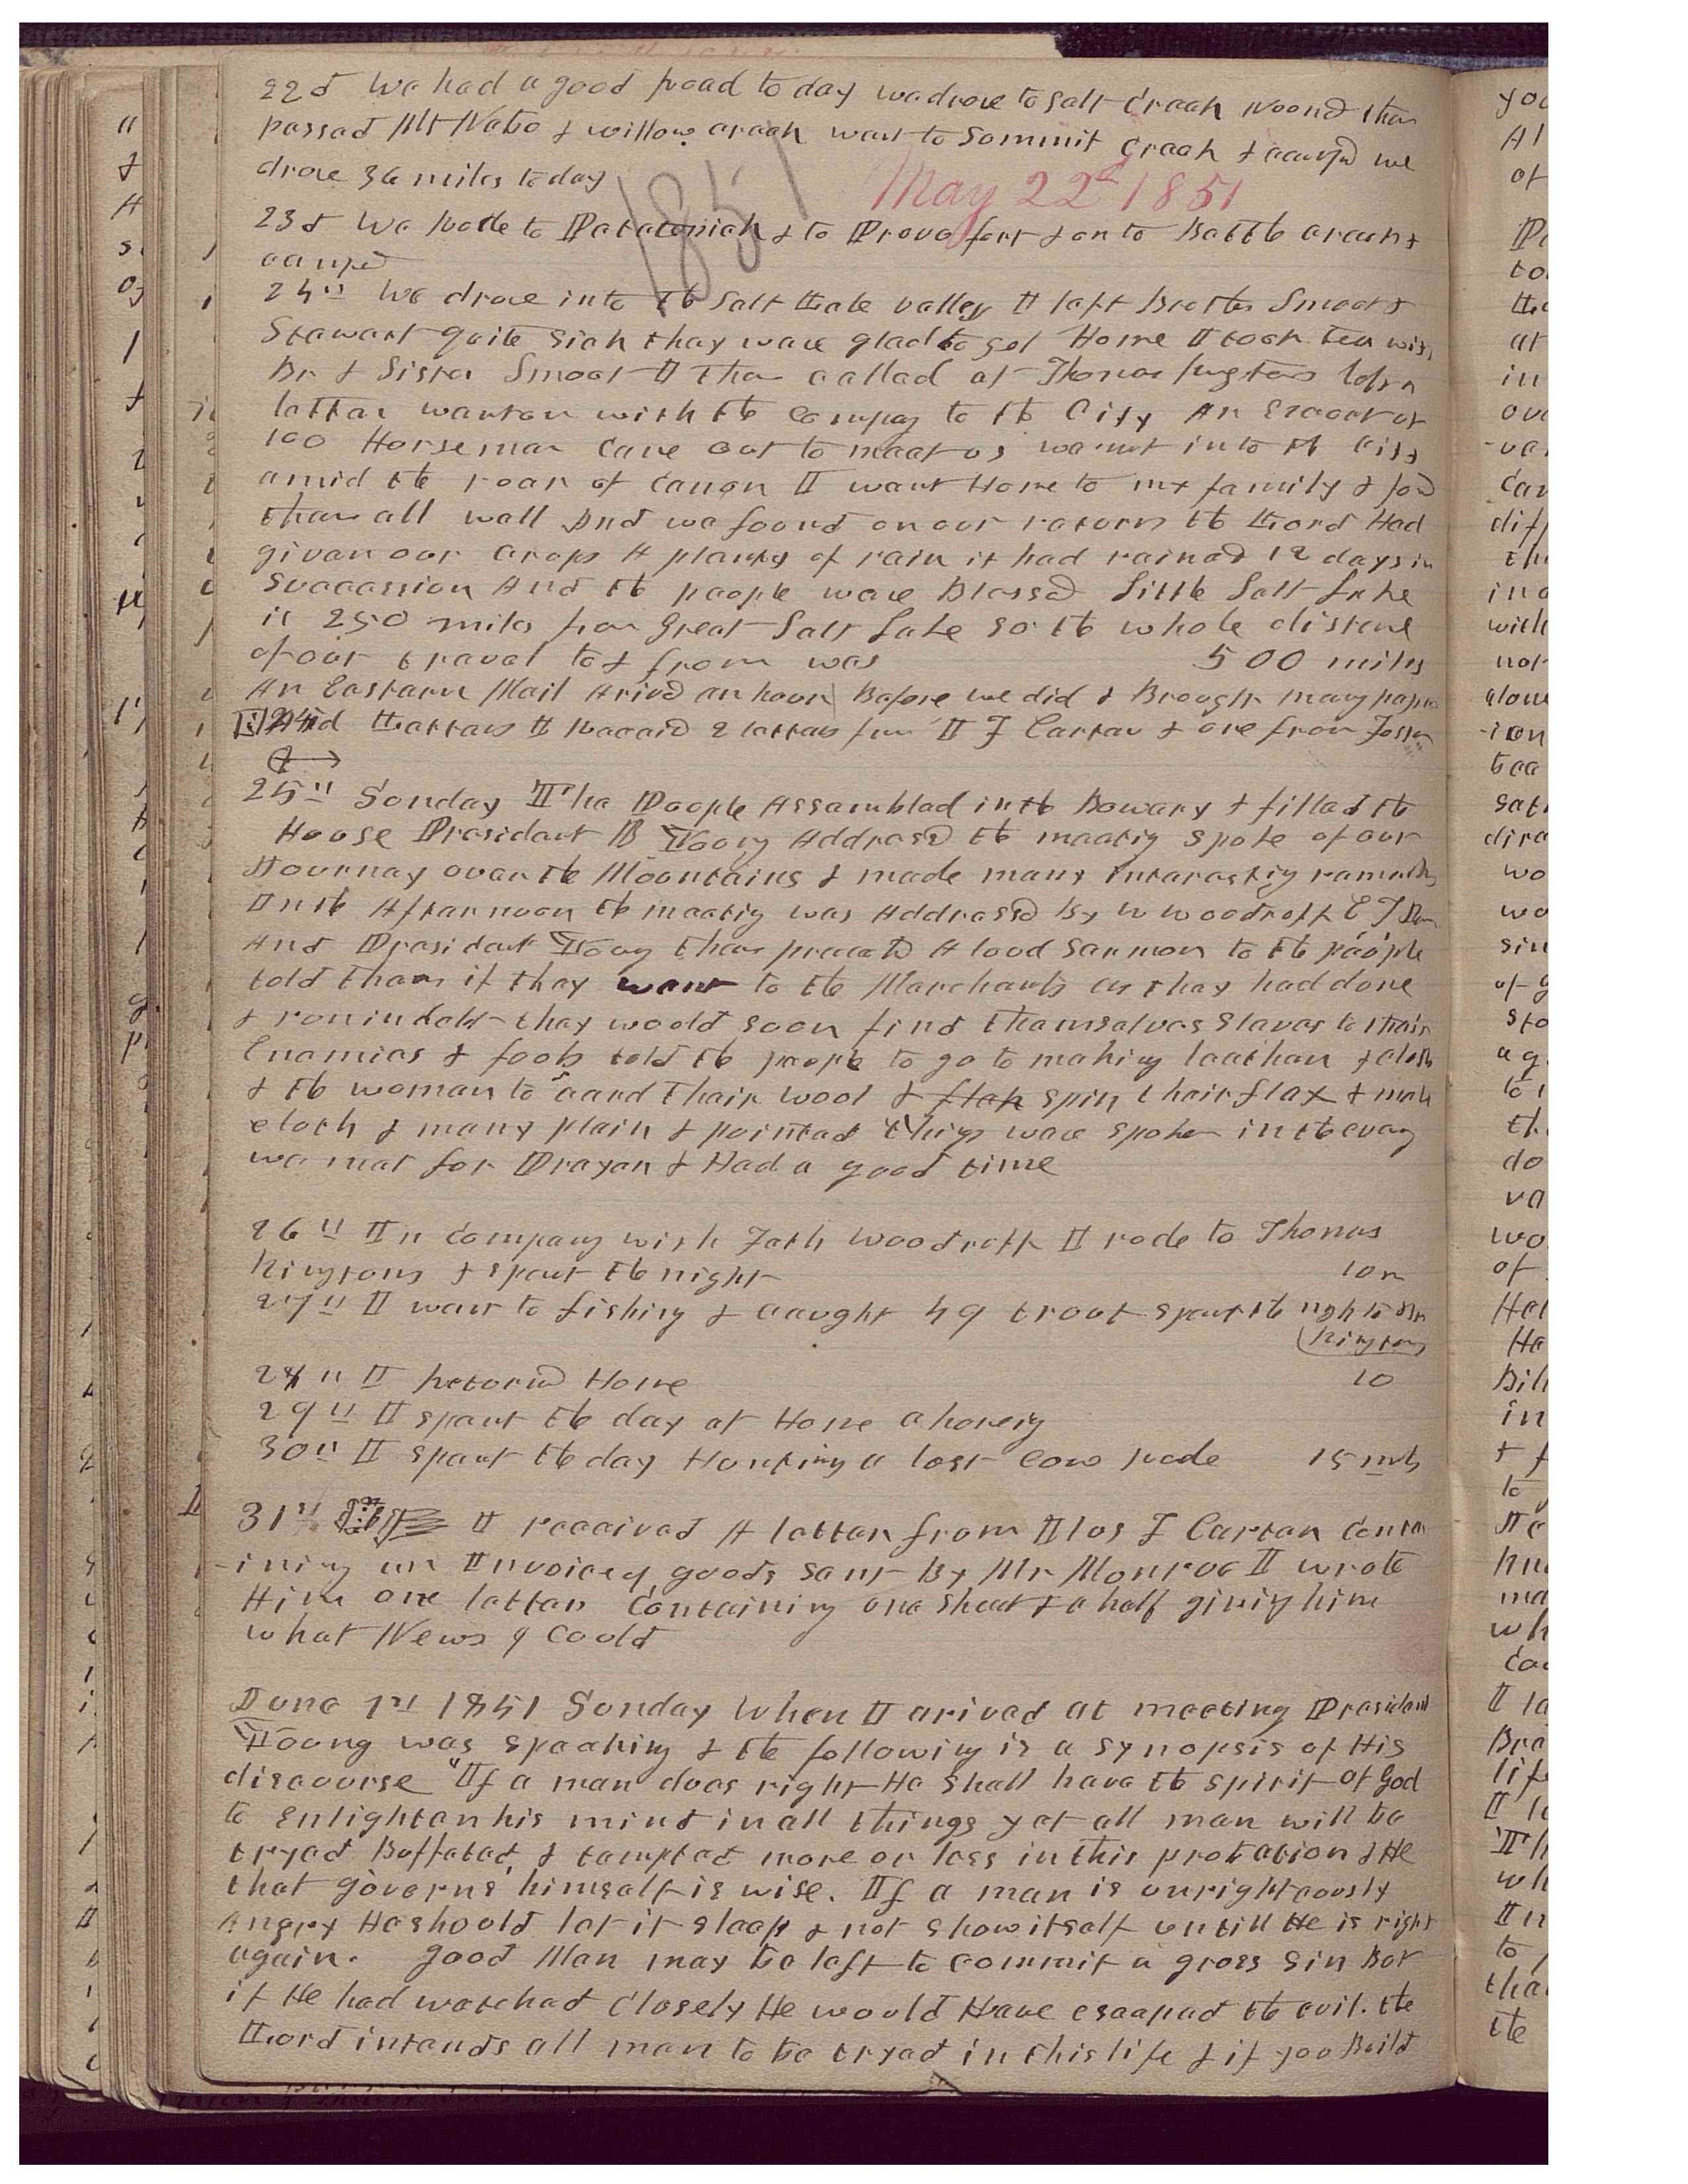 22d We had a good road to day we drove to Salt Creek Noond then
passed Mt Nebo & willow creek went to Sommit Creek & campd we
drove 36 miles to day
1851
May 22d 1851
23d We rode to Petetenich & to Provo fort & on to Battle creek &
camped
24th We drove into the Salt Lake valley I left Brother Smoot &
Stewart quite sick they were glad to get Home I took tea with
Br & Sister Smoot I then called at Thomas Kingtons left a
letter went on with the Company to the City An Escort of
100 Horsemen came out to meet us we went into the City
amid the roar of Canon I went Home to my family & found
them all well And we found on our return the Lord Had
given our crops A planty of rain it had rained 12 days in
Succession And the people were Blessed Little Salt Lake
is 250 miles from Great Salt Lake so the whole distene
of our travel to & from was 500 miles
An Eastern Mail Arived an hour Before we did & Brought many papers
And Letters I Receied 2 letters from I F Carter & one from
25th Sunday The People Assembled in the Bowery & filled the
House President B Young Addressed the meeting spoke of our
Journey over the Mountains & made many interesting remarks
In the Afternoon the meeting was Addressed By W Woodruff E T Ben
And President Young then preached A loud Sermon to the people
told them if they went to the Merchants as they had done
& run in debt they would soon find themselves Slaves to their
Enemies & fools told the people to go to making leather & cloth
& the women to card their wool & flax spin their flax & make
cloth & many plain & pointed things were spoken in the eveng
we met for Prayer & Had a good time
26th In company with Fath Woodruff I rode to Thomas
Kingtons & spent the night 10 m
27th I went to fishing & caught 49 trout spent the night to Br
Kingtons
28th I returnd Home 10
29th I spent the day at Home choreing
30th I spent the day Hunting a lost Cow rode 15 mls
31st I received A letter from Ilos F Carter Conta
-ining an Invoice of goods sent By Mr Monroe I wrote
Him one letter Containing one Sheet & a half giving him
what News I Could
June 1st 1851 Sunday When I arived at meeting President
Young was speaking & the following is a synopsis of His
discourse "If a man does right He shall have the spirit of God
to enlighten his mind in all things yet all men will be
tryed Buffeted & tempted more or less in this probation & He
that governs himself is wise. If a man is unrighteously
Angry He should let it sleep & not show itself untill He is right
again. good Man may be left to commit a gross sin But
if He had watched closely He would Have escaped the evil. the
Lord intends all men to be tryed in this life & if you Build